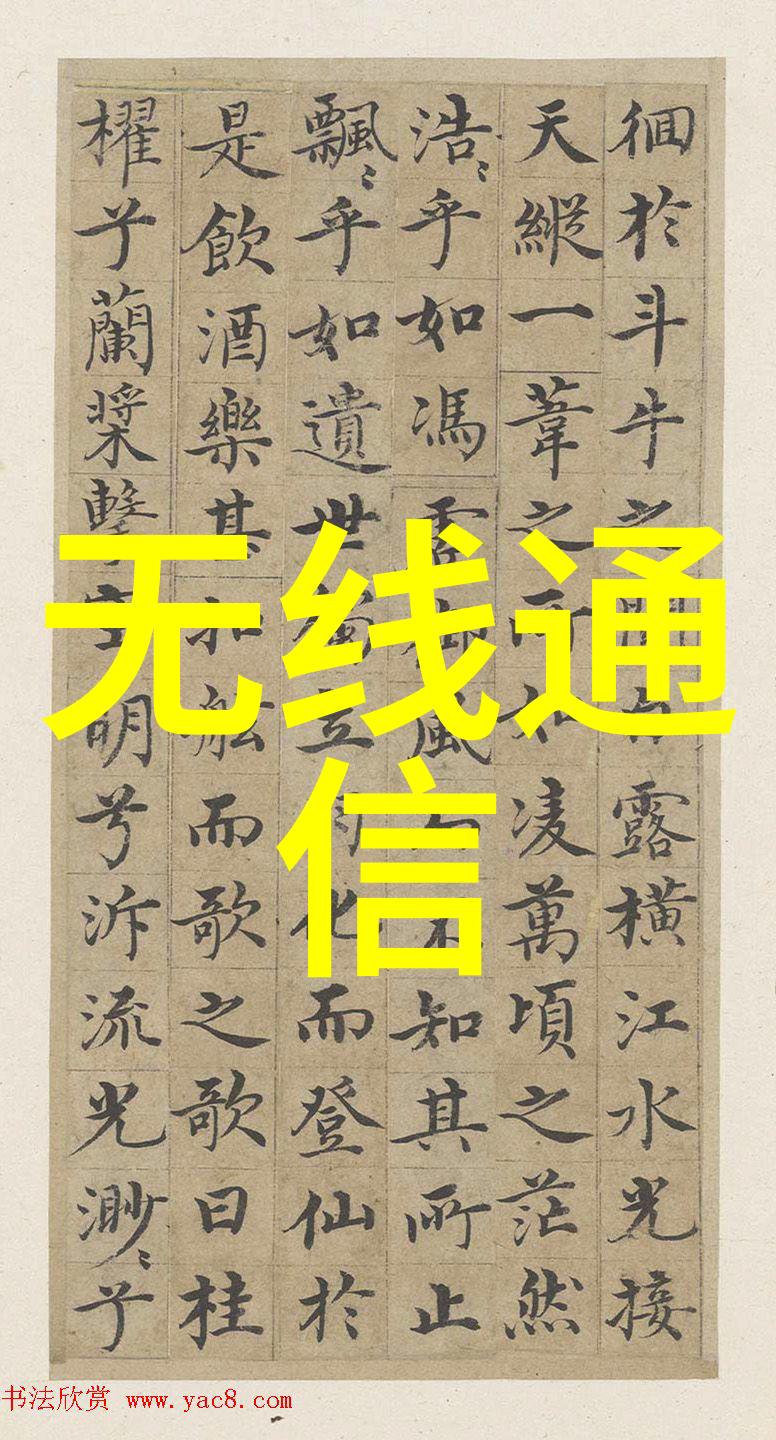 徊於斗牛之間白露橫江水光接
天縱一葦之所如凌萬頃之茫然
浩〻乎如馮虛御風而不知其所止
飄〻乎如遺世獨立羽化而登仙於
是飲酒樂甚扣舷而歌之歌曰桂
櫂兮蘭槳擊空明兮泝流光渺〻兮
无线通
信
书法欣赏 www.yac8.com